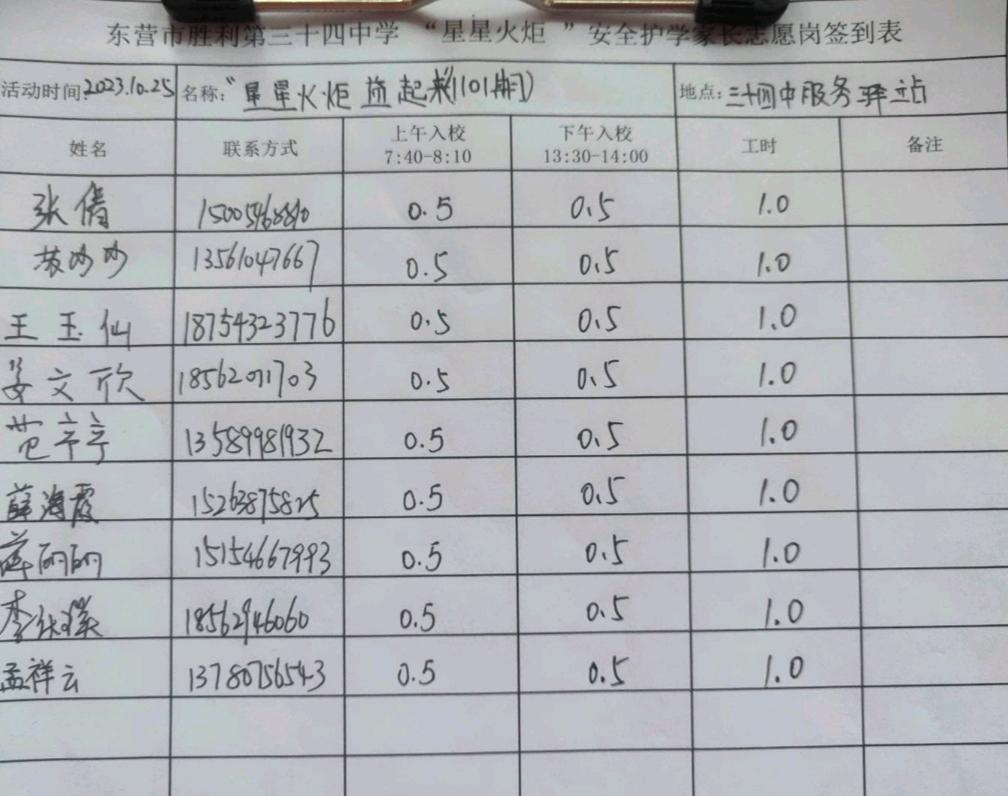 东营市胜利第三十四中学 “星星火炬 ”安全护学家长志愿岗签到表
活动时间:2023.10.25 名称:“星星火炬 旗起来(1101期) 地点:三十四中服务驿站
姓名 联系方式 上午入校 7:40-8:10 下午入校 13:30-14:00 工时 备注
张倩 0.5 0.5 1.0
13561047667 0.5 0.5 1.0
王玉仙 18754323776 0.5 0.5 1.0
姜文欣 0.5 0.5 1.0
范亭亭 13589981932 0.5 0.5 1.0
薛海霞 15263875825 0.5 0.5 1.0
蒋丽丽 15154667993 0.5 0.5 1.0
李 18562946060 0.5 0.5 1.0
孟祥云 13780756543 0.5 0.5 1.0